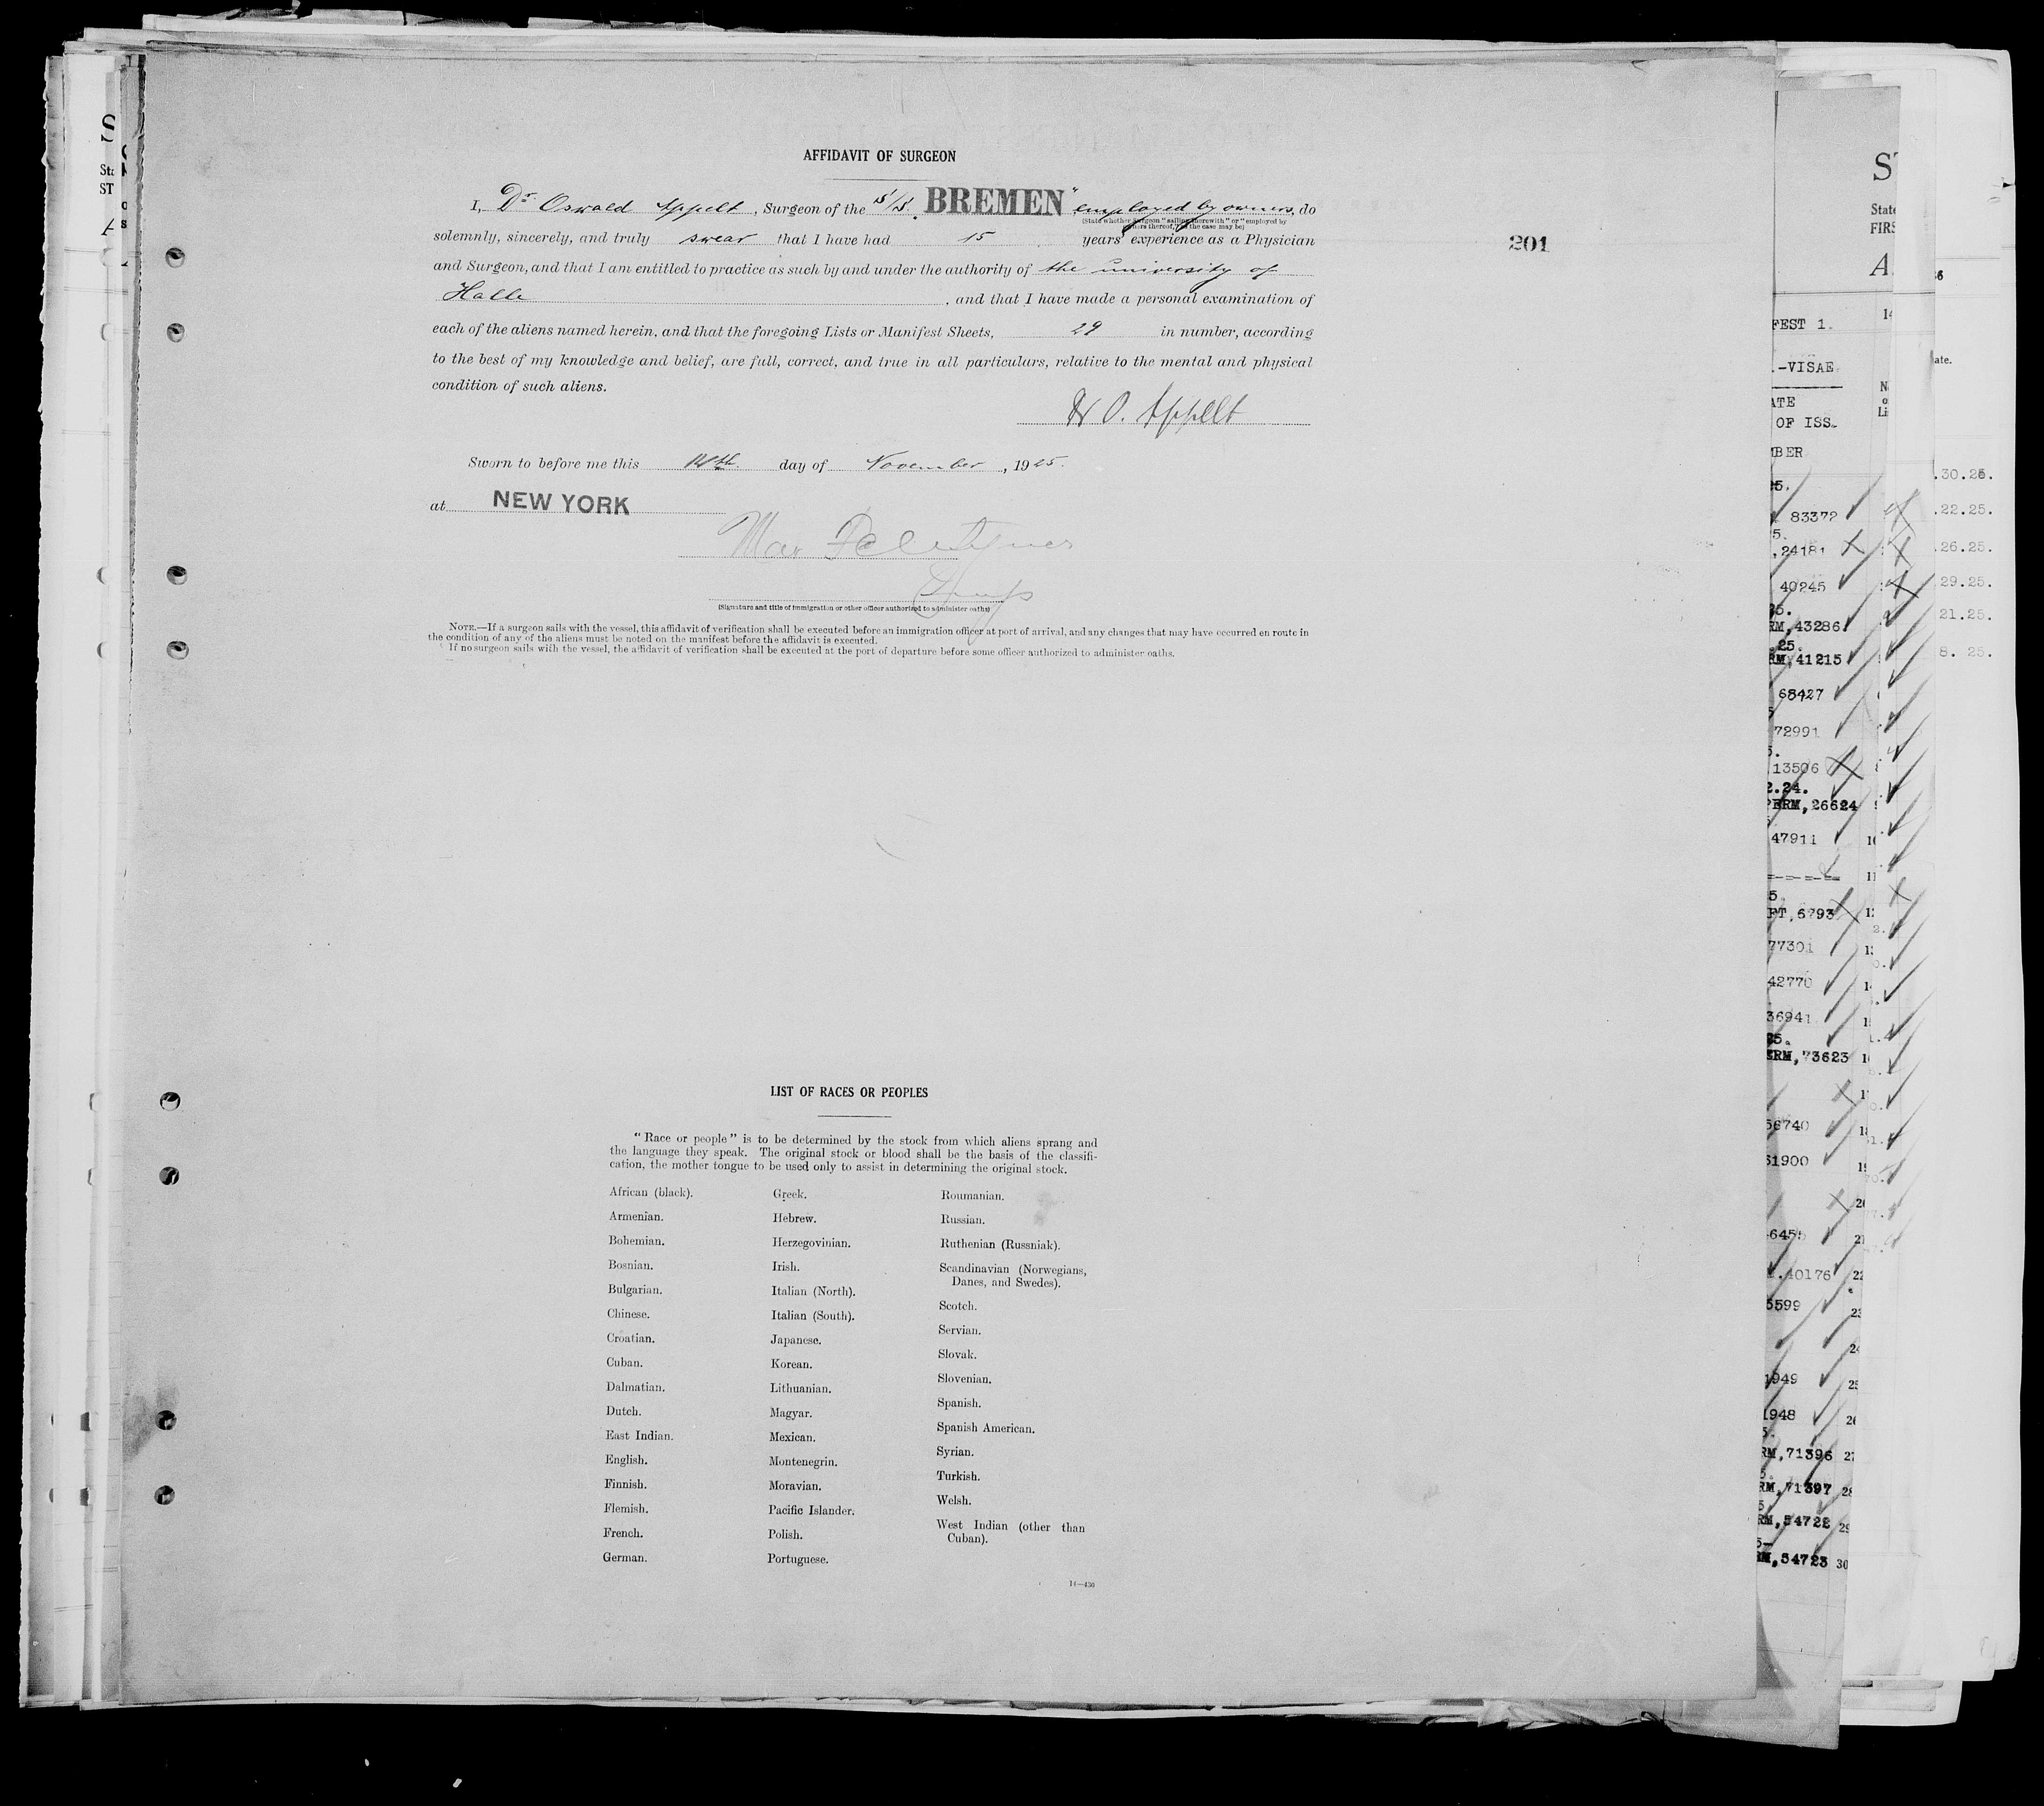 AFFIDAVIT OF SURGEON
I, Dr Oswald Appelt, Surgeon of the S/S. "BREMEN" employed by owners, do
(State whether Surgeon "sailing therewith" or "employed by
owners thereof," as the case may be)
solemnly, sincerely, and truly swear that I have had 15 years' experience as a Physician
and Surgeon, and that I am entitled to practice as such by and under the authority of the university of
Halle, and that I have made a personal examination of
each of the aliens named herein, and that the foregoing Lists or Manifest Sheets, 29 in number, according
to the best of my knowledge and belief, are full, correct, and true in all particulars, relative to the mental and physical
condition of such aliens.
O. Appelt
201
Sworn to before me this day of November, 1925.
at NEW YORK
Max
(Signature and title of immigration or other officer authorized to administer oaths)
NOTE.—If a surgeon sails with the vessel, this affidavit of verification shall be executed before an immigration officer at port of arrival, and any changes that may have occurred en route in
the condition of any of the aliens must be noted on the manifest before the affidavit is executed.
If no surgeon sails with the vessel, the affidavit of verification shall be executed at the port of departure before some officer authorized to administer oaths.
LIST OF RACES OR PEOPLES
"Race or people" is to be determined by the stock from which aliens sprang and
the language they speak. The original stock or blood shall be the basis of the classifi-
cation, the mother tongue to be used only to assist in determining the original stock.
African (black).
Armenian.
Bohemian.
Bosnian.
Bulgarian.
Chinese.
Croatian.
Cuban.
Dalmatian.
Dutch.
East Indian.
English.
Finnish.
Flemish.
French.
German.
Greek.
Hebrew.
Herzegovinian.
Irish.
Italian (North).
Italian (South).
Japanese.
Korean.
Lithuanian.
Magyar.
Mexican.
Montenegrin.
Moravian.
Pacific Islander.
Polish.
Portuguese.
Roumanian.
Russian.
Ruthenian (Russniak).
Scandinavian (Norwegians,
Danes, and Swedes).
Scotch.
Servian.
Slovak.
Slovenian.
Spanish.
Spanish American.
Syrian.
Turkish.
Welsh.
West Indian (other than
Cuban).
14—430
FEST 1.
-VISAE
ATE
OF ISS.
BER
83372
,24181
40245
RM,43286
25.
RM,41215
68427
72991
13506
2.24.
PERM,26624
47911
PT,6793
77301
42770
36941
25.
ERM,73623
56740
31900
6455
.40176
5599
1949
1948
RM,71396
RM,71397
RM,54722
RM,54723
State
FIRS
.30.25.
.22.25.
.26.25.
.29.25.
21.25.
8. 25.